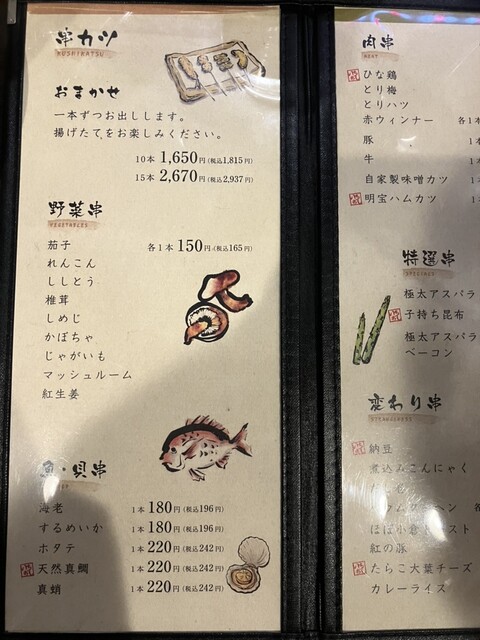 串カツ
KUSHIKATSU
おまかせ
一本ずつお出しします。
揚げたてをお楽しみください。
10本 1,650円(税込1,815円)
15本 2,670円(税込2,937円)
野菜串
VEGETABLES
茄子 各1本 150円(税込165円)
れんこん
ししとう
椎茸
しめじ
かぼちゃ
じゃがいも
マッシュルーム
紅生姜
魚・貝串
海老 1本 180円(税込196円)
するめいか 1本 180円(税込196円)
ホタテ 1本 220円(税込242円)
天然真鯛 1本 220円(税込242円)
真蛸 1本 220円(税込242円)
肉串
MEAT
ひな鶏
とり梅
とりハツ
赤ウィンナー 各1本
豚 1本
牛 1本
自家製味噌カツ 1
明宝ハムカツ 1
特選串
SPECIALS
極太アスパラ
子持ち昆布
極太アスパラ
ベーコン
変わり串
納豆
煮込みこんにゃく
紅の豚
たらこ大葉チーズ
カレーライス